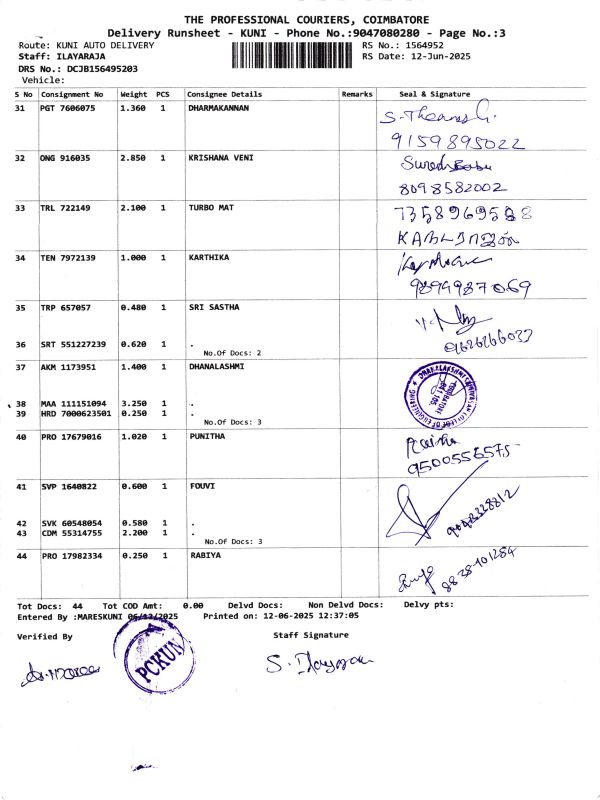 THE PROFESSIONAL COURIERS, COIMBATORE
Delivery Runsheet - KUNI - Phone No.:9047080280 - Page No.:3
Route: KUNI AUTO DELIVERY RS No.: 1564952
Staff: ILAYARAJA RS Date: 12-Jun-2025
DRS No.: DCJB156495203
Vehicle:
S No Consignment No Weight PCS Consignee Details Remarks Seal & Signature
31 PGT 7606075 1.360 1 DHARMAKANNAN
9159895022
32 ONG 916035 2.850 1 KRISHANA VENI Suresh Babu
8098582002
33 TRL 722149 2.100 1 TURBO MAT 7358969588
34 TEN 7972139 1.000 1 KARTHIKA
9894987069
35 TRP 657057 0.480 1 SRI SASTHA
36 SRT 551227239 0.620 1 .
No.Of Docs: 2
37 AKM 1173951 1.400 1 DHANALASHMI
38 MAA 111151094 3.250 1 .
39 HRD 7000623501 0.250 1 .
No.Of Docs: 3
40 PRO 17679016 1.020 1 PUNITHA
9500556575
41 SVP 1640822 0.600 1 FOUVI
42 SVK 60548054 0.580 1 .
43 CDM 55314755 2.200 1 .
No.Of Docs: 3
44 PRO 17982334 0.250 1 RABIYA
8828101284
Tot Docs: 44 Tot COD Amt: 0.00 Delvd Docs: Non Delvd Docs: Delvy pts:
Entered By :MARESKUNI 06/12/2025 Printed on: 12-06-2025 12:37:05
Verified By Staff Signature
PCKUN